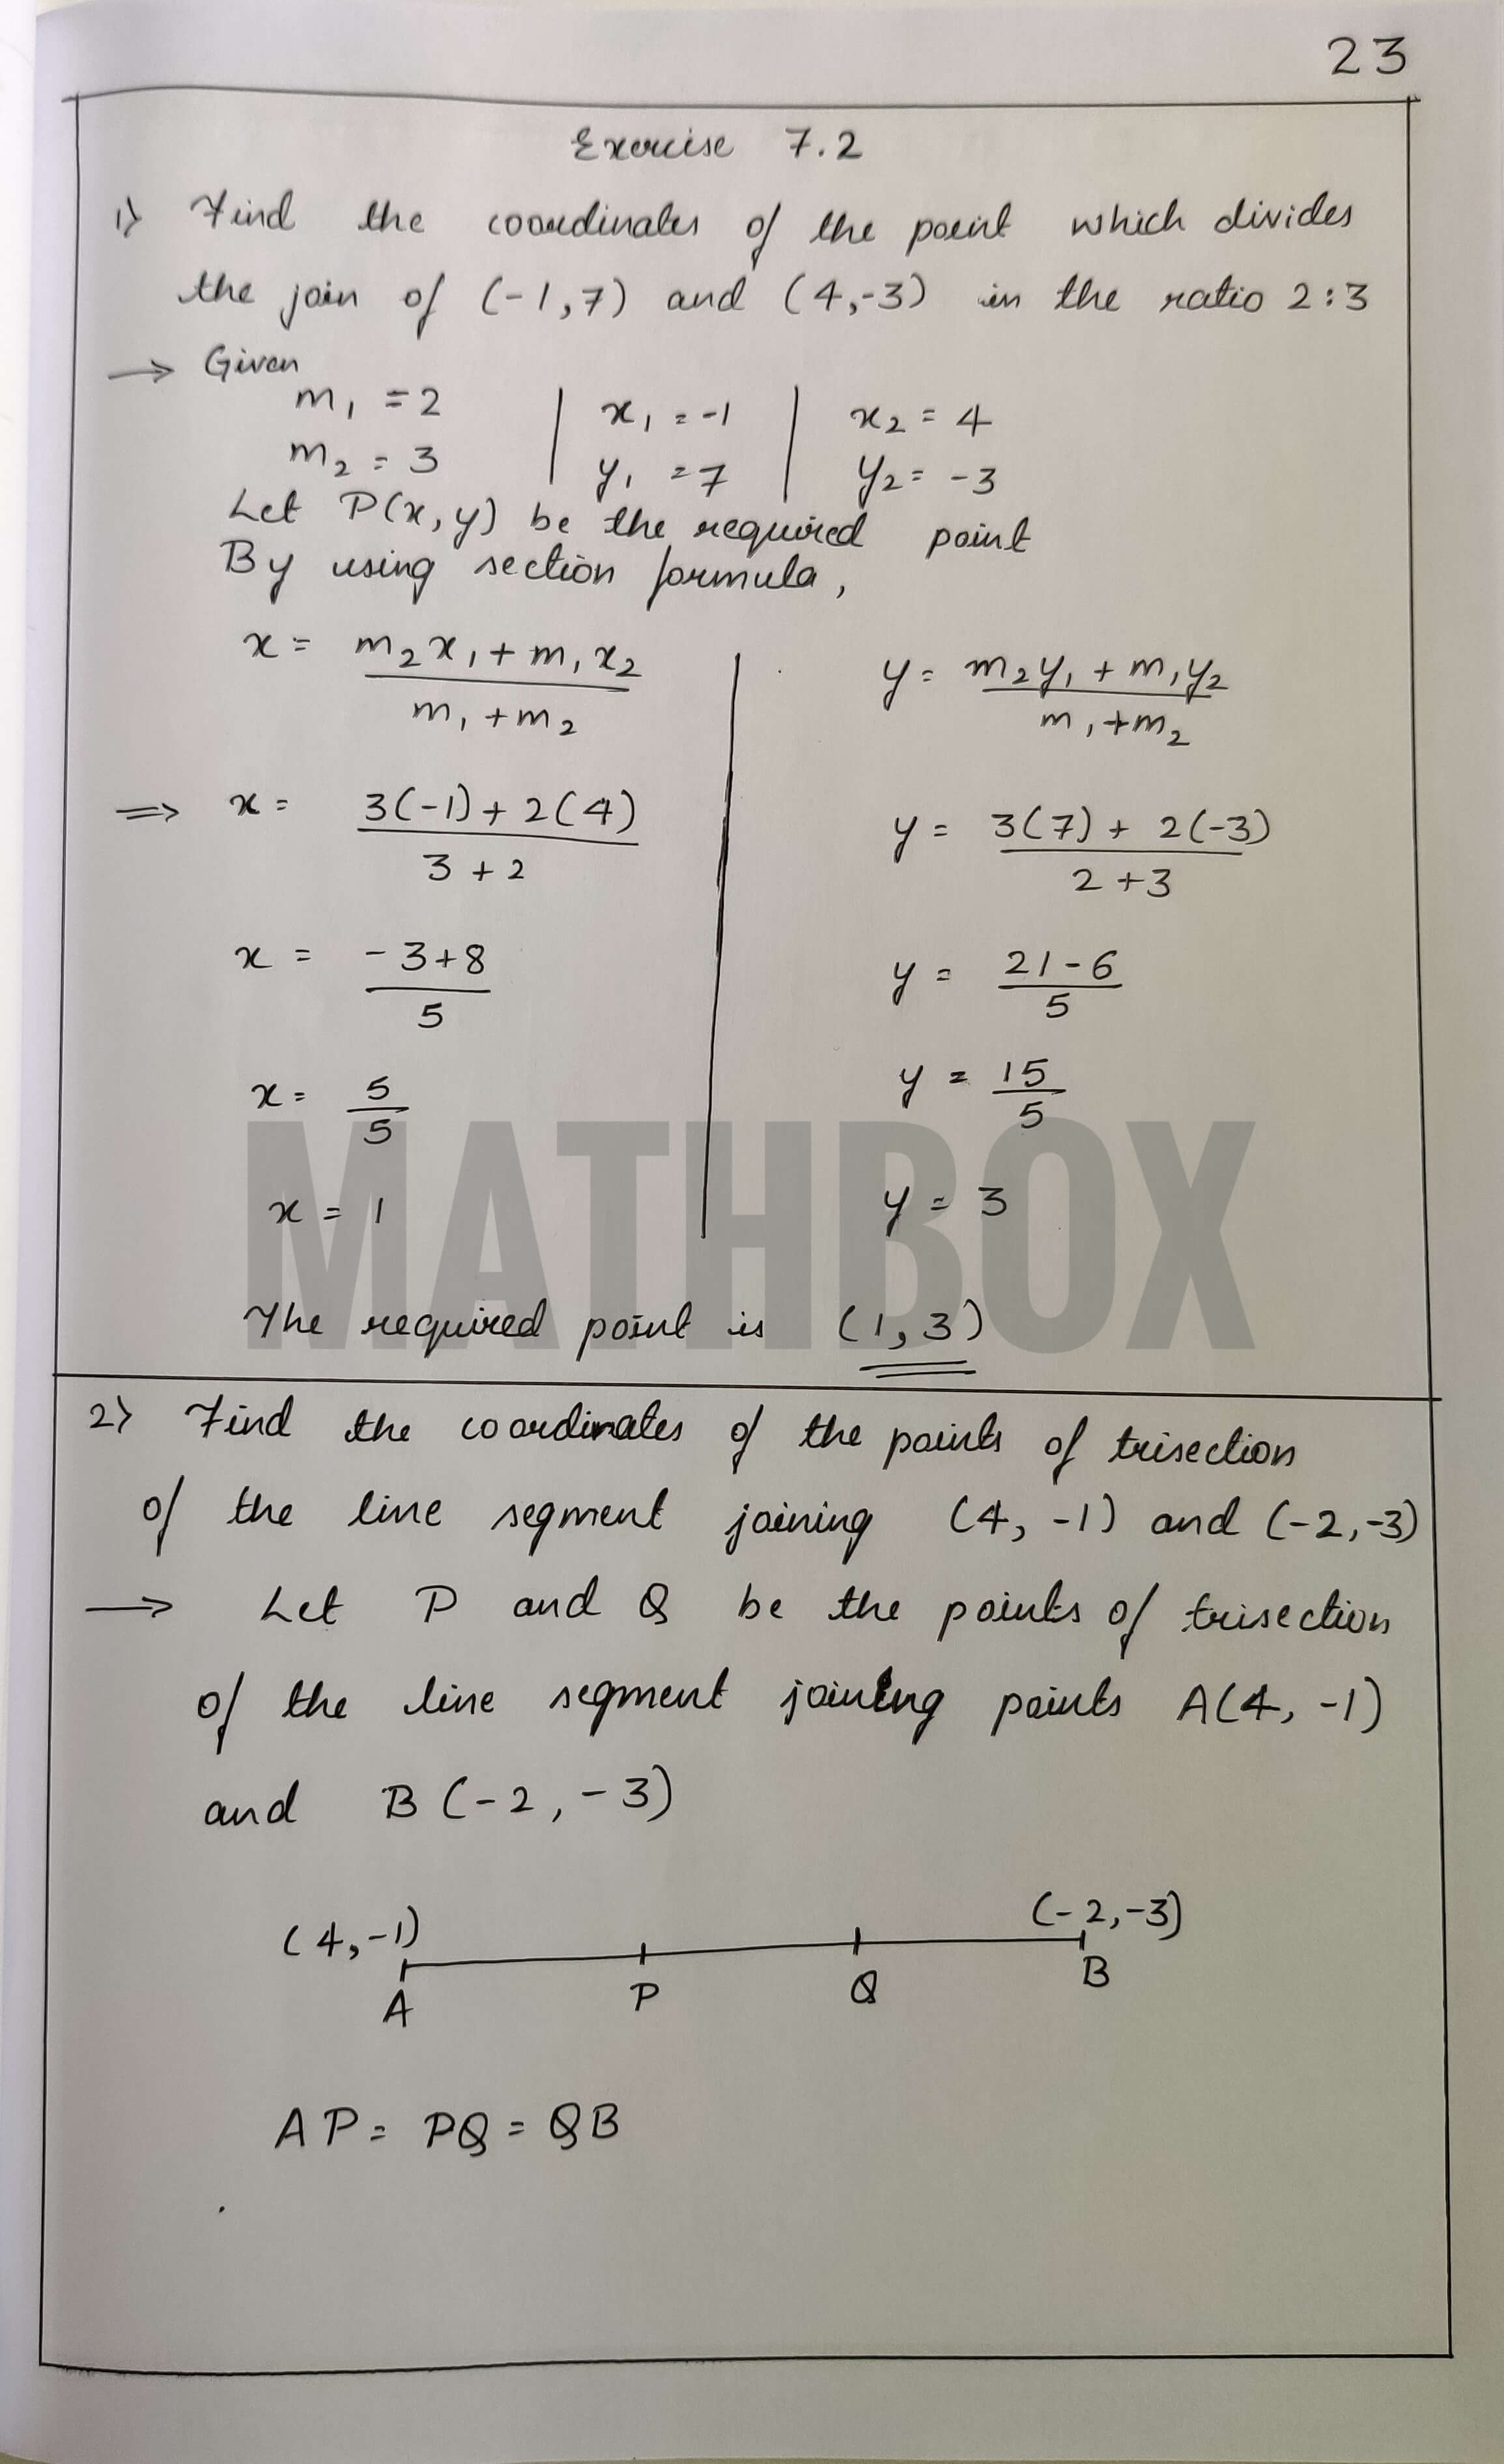 23
Exercise 7.2
1) Find the coordinates of the point which divides
the join of (-1,7) and (4,-3) in the ratio 2:3
→ Given
m₁ = 2 | x₁ = -1 | x₂ = 4
m₂ = 3 | y₁ = 7 | y₂ = -3
Let P(x,y) be the required point
By using section formula,
x = (m₂x₁ + m₁x₂)/(m₁ + m₂) | y = (m₂y₁ + m₁y₂)/(m₁ + m₂)
⇒ x = (3(-1) + 2(4))/(3 + 2) | y = (3(7) + 2(-3))/(2 + 3)
x = (-3+8)/5 | y = (21-6)/5
x = 5/5 | y = 15/5
x = 1 | y = 3
MATHBOX
The required point is (1,3)
2) Find the coordinates of the points of trisection
of the line segment joining (4, -1) and (-2,-3)
→ Let P and Q be the points of trisection
of the line segment joining points A(4, -1)
and B(-2, -3)
(4,-1) (-2,-3)
A P Q B
AP = PQ = QB